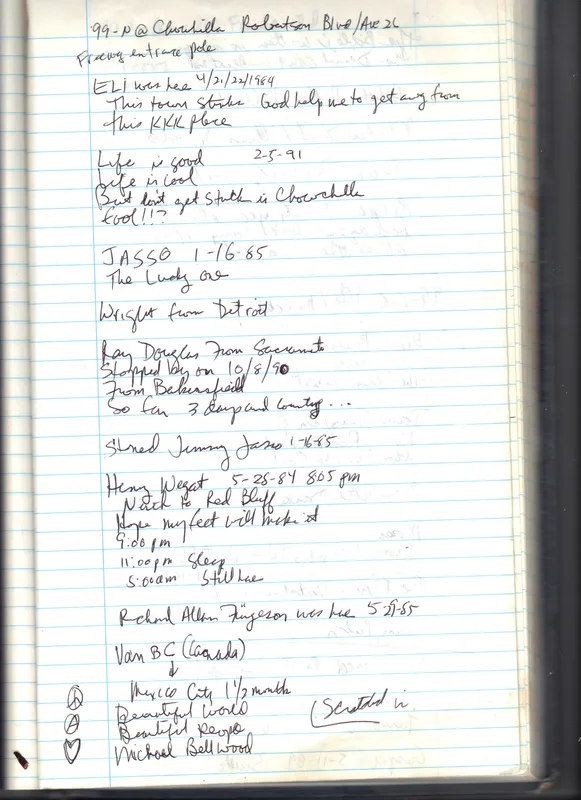 99-N @ Chowchilla Robertson Blvd/Ave 26
Freeway entrance pole
ELI was here 4/21/22/1984
This town stinks God help me to get away from
this KKK place
Life is good 2-5-91
Life is cool
But don't get stuck is Chowchilla
fool!!?
JASSO 1-16-85
The Lucky one
Wright from Detroit
Ray Douglas From Sacramento
Stopped by on 10/8/90
From Bakersfield
So far 3 days and counting...
Stoned Jimmy Jasso 1-16-85
Henry Wegat 5-28-84 8:05 pm
North to Red Bluff
Hope my feet will make it
9:00 pm
11:00pm Sleep
5:00am Still here
Richard Allan was here 5-29-85
Van BC (Canada)
↓
Mexico City 1 1/2 months
Beautiful World
Beautiful People
Michael Bellwood
(Scratched in